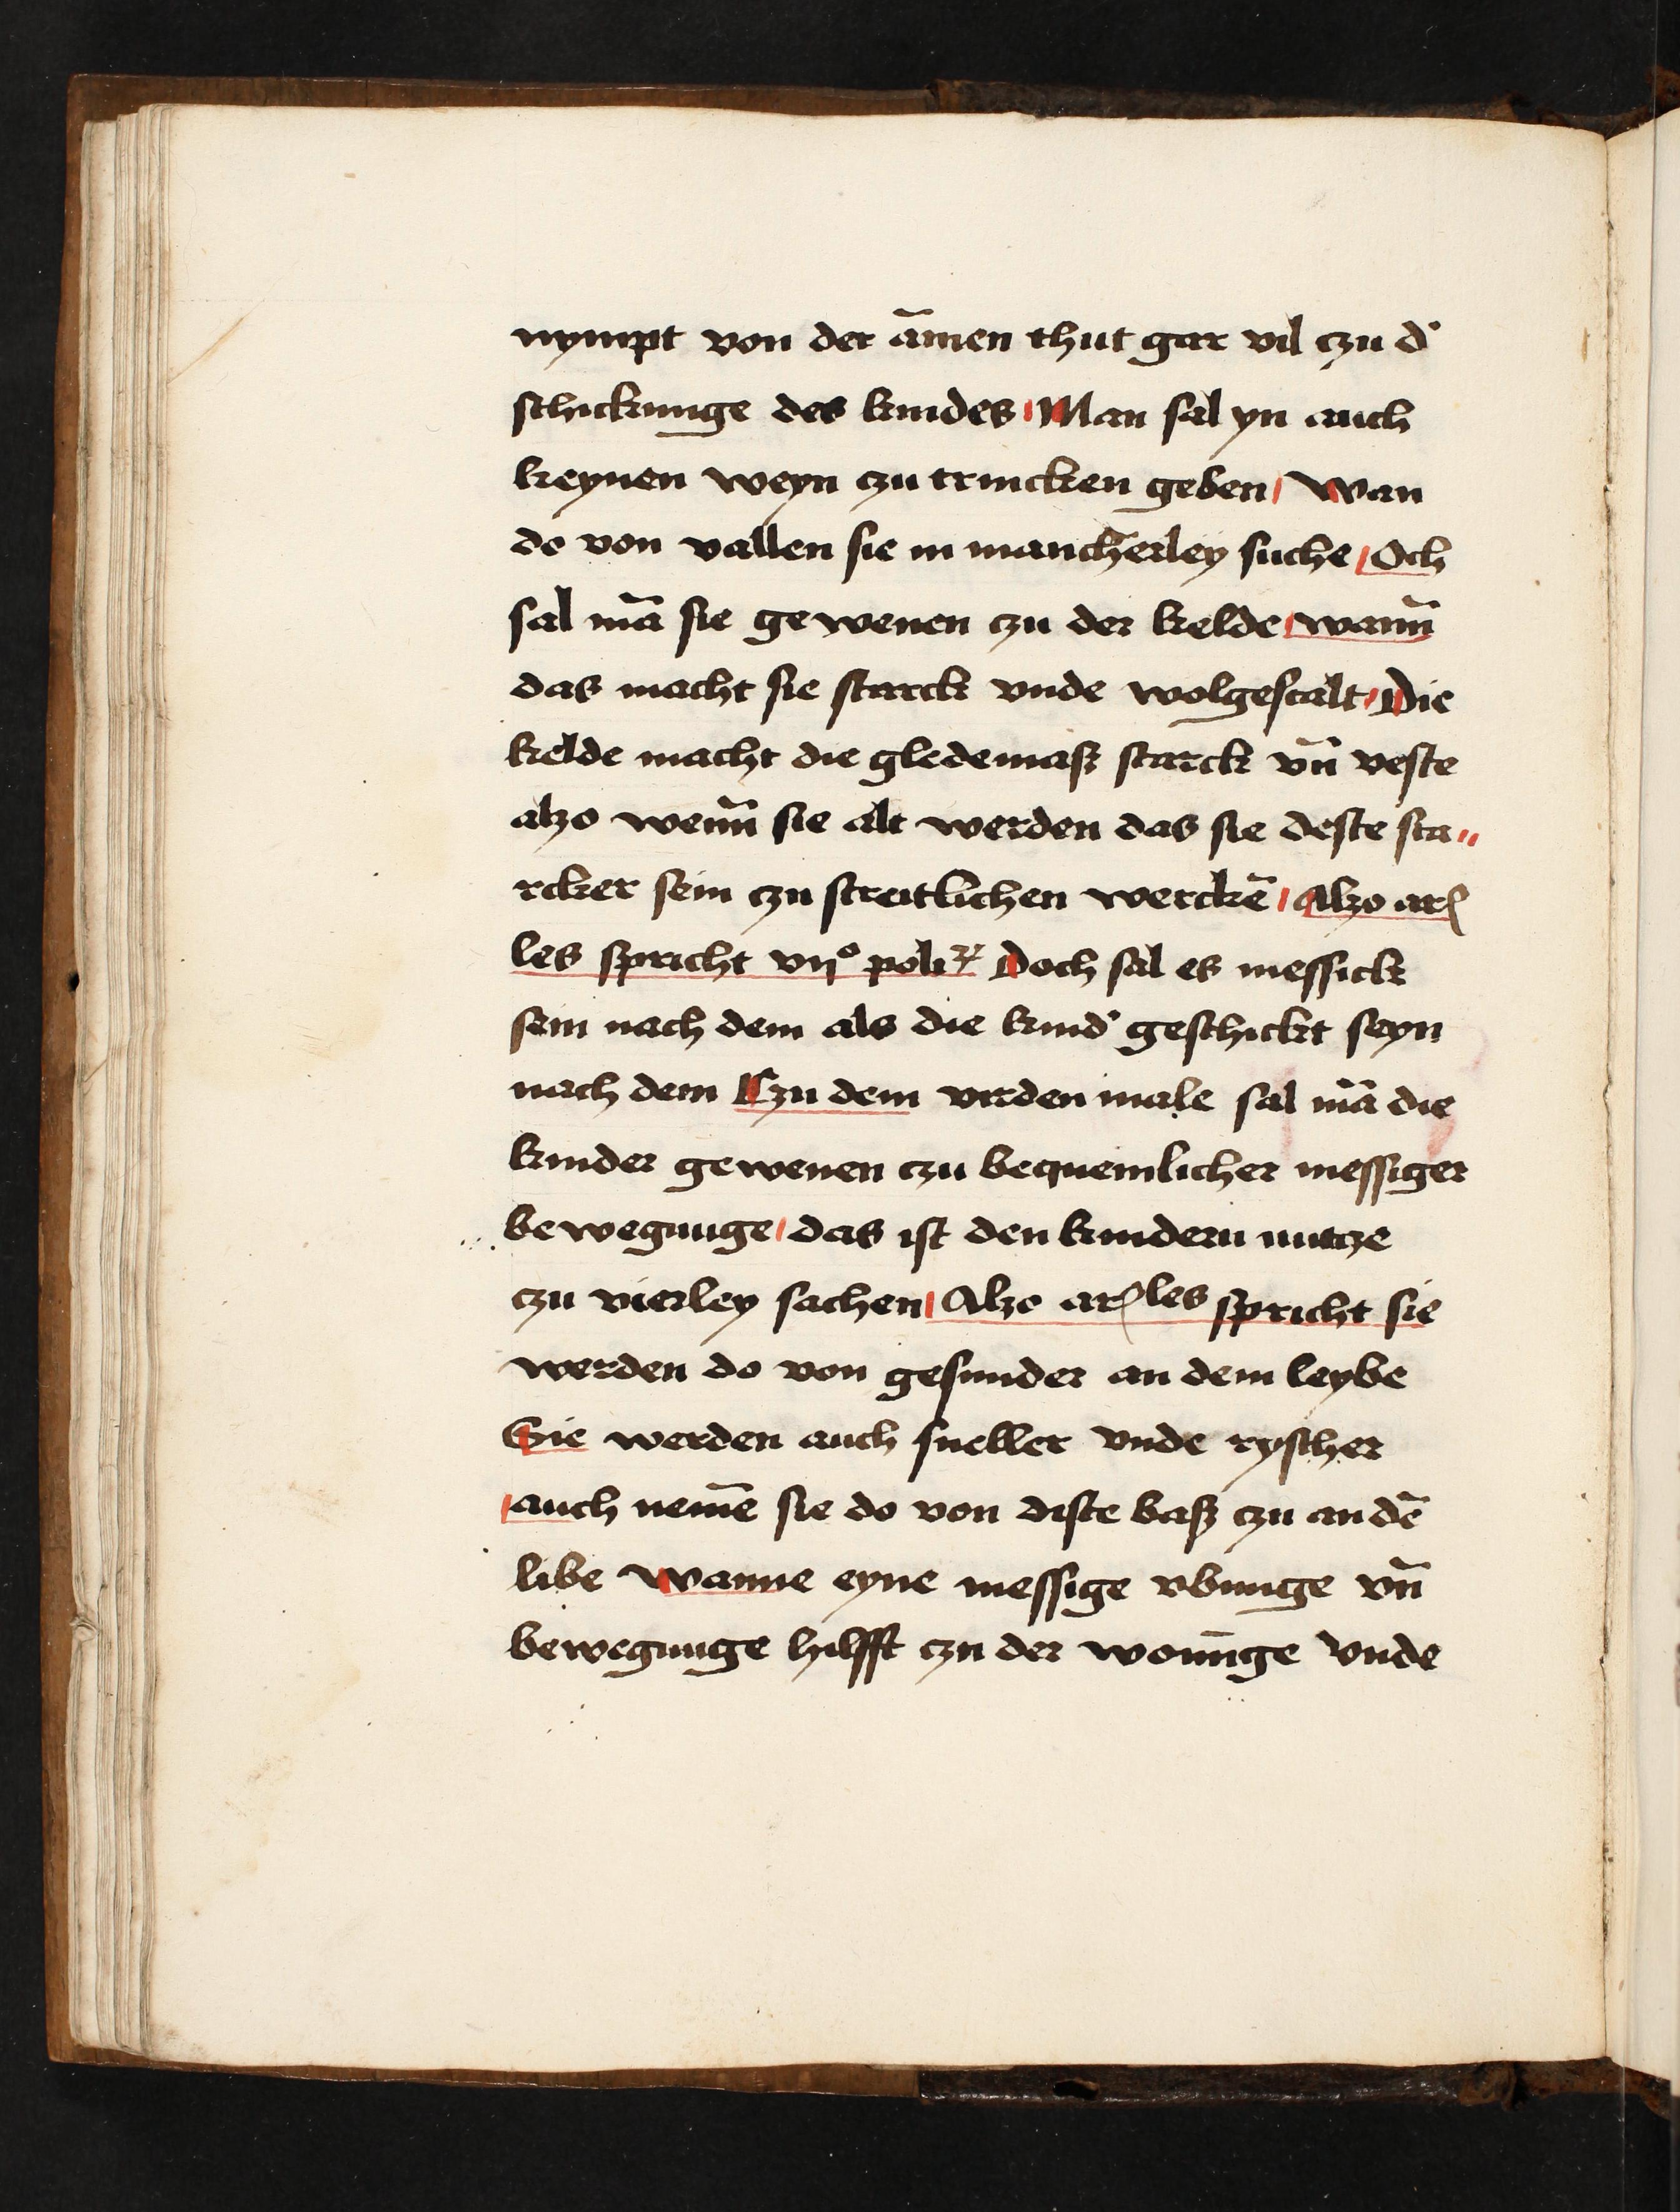 nympt von der āmen thut gar vil czu d'
schickunge des kindes Man sal yn auch
keynen weyn czu trincken geben Wan
do von vallen sie in mancherley suche Och
sal mā sie gewenen czu der kelde wann̄
das macht sie starck vnde wolgestalt Die
kelde macht die gledemaß starck vn̄ veste
alzo wenn̄ sie alt werden das sie deste sta〃
rcker sein czu streitlichen werckē Alzo ar
les spricht vijº poli Doch sal es messick
sein nach dem als die kind' geschickt seyn
nach dem Czu dem virden male sal mā die
kinder gewenen czu bequemlicher messiger
bewegunge das ist den kindern nutcze
czu vierley sachen Alzo ar les spricht sie
werden do von gesunder an dem leybe
Sie werden auch sneller vnde ryscher
auch nemē sie do von diste baß czu an dē
libe Wanne eyne messige vbunge vn̄
bewegunge hilfft czu der wonūge Vnde